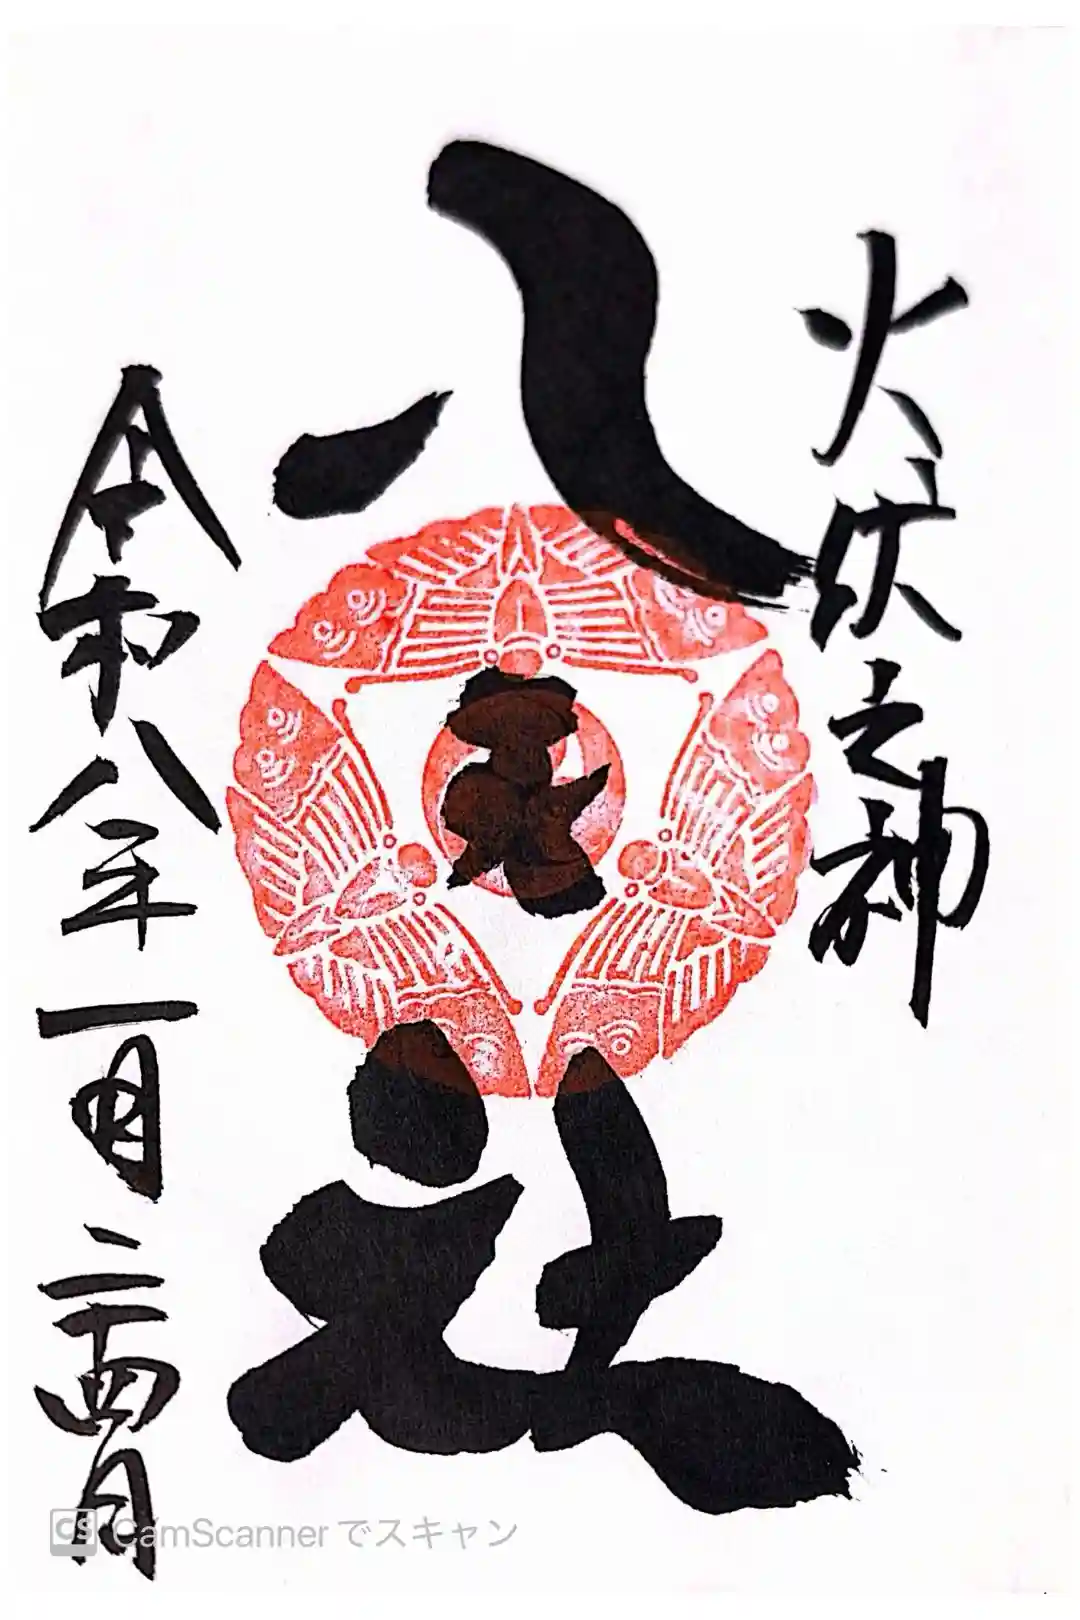 火伏之神
八玉社
令和八年一月二十四日
CS CamScannerでスキャン